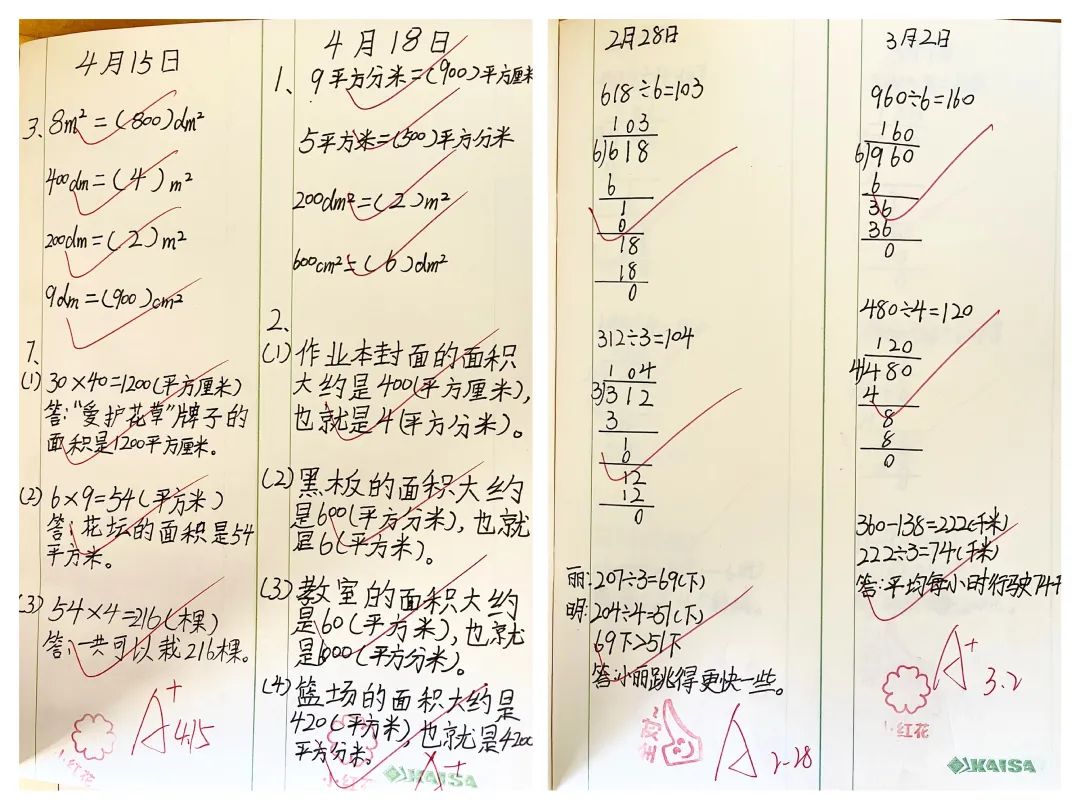 4月15日
3、8m²=(800)dm²
400dm=(4)m²
200dm=(2)m²
9dm=(900)cm²
7、
(1) 30×40=1200(平方厘米)
答:“爱护花草”牌子的
面积是1200平方厘米。
(2) 6×9=54(平方米)
答:花坛的面积是54
平方米。
(3) 54×4=216(棵)
答:一共可以栽216棵。
A+ 4.15
小红花
4月18日
1、9平方分米=(900)平方厘米
5平方米=(500)平方分米
200dm²=(2)m²
600cm²=(6)dm²
2、
(1) 作业本封面的面积
大约是400(平方厘米),
也就是4(平方分米)。
(2) 黑板的面积大约
是600(平方分米),也就
是6(平方米)。
(3) 教室的面积大约
是60(平方米),也就
是6000(平方分米)。
(4) 篮场的面积大约是
420(平方米),也就是4200
平方分米。
小红花
A+
KAISA
2月28日
618÷6=103
103
6)618
6
1
0
18
18
0
312÷3=104
104
3)312
3
1
0
12
12
0
丽:207÷3=69(下)
明:204÷4=51(下)
69下>51下
答:小丽跳得更快一些。
全对~
A 2-28
3月2日
960÷6=160
160
6)960
6
36
36
0
480÷4=120
120
4)480
4
8
8
0
360-138=222(千米)
222÷3=74(千米)
答:平均每小时行驶74千
A+ 3.2
小红花
KAISA